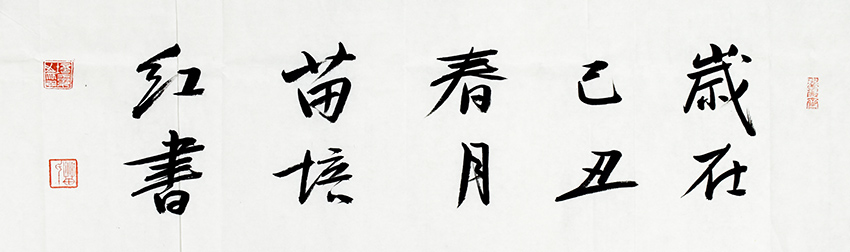 歲在
己丑
春月
苗培
红書